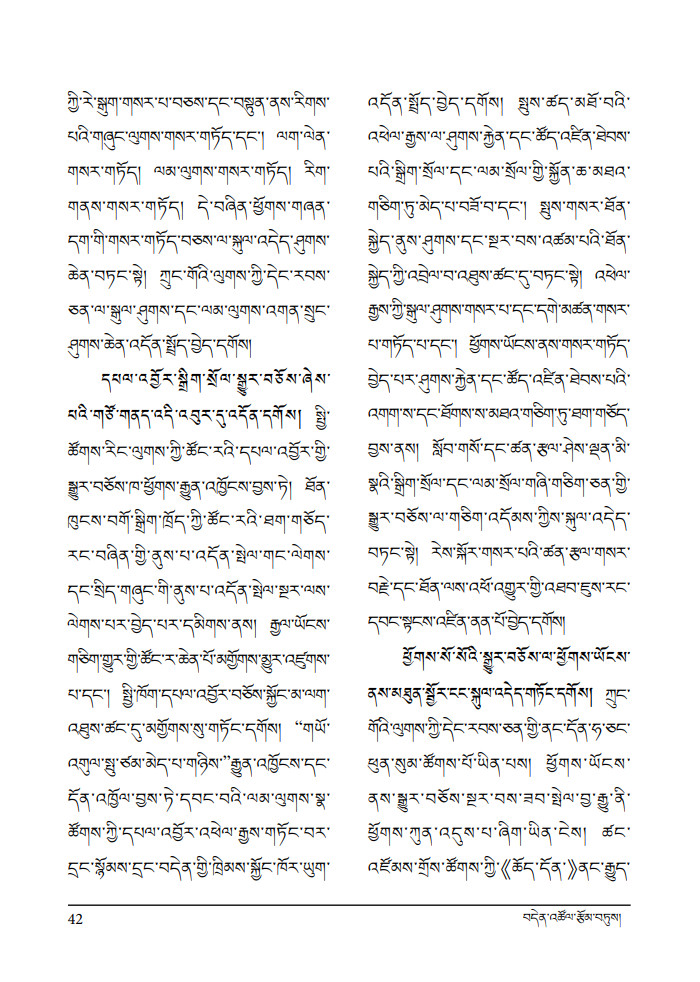 ཀྱི་རེ་སྒུག་གསར་པ་བཅས་དང་བསྟུན་ནས་རིགས་
པའི་གཞུང་ལུགས་གསར་གཏོད་དང་། ལག་ལེན་
གསར་གཏོད། ལམ་ལུགས་གསར་གཏོད། རིག་
གནས་གསར་གཏོད། དེ་བཞིན་ཕྱོགས་གཞན་
དག་གི་གསར་གཏོད་བཅས་ལ་སྐུལ་འདེད་ཤུགས་
ཆེན་བཏང་སྟེ། ཀྲུང་གོའི་ལུགས་ཀྱི་དེང་རབས་
ཅན་ལ་སྒུལ་ཤུགས་དང་ལམ་ལུགས་འགན་སྲུང་
ཤུགས་ཆེན་འདོན་སྤྲོད་བྱེད་དགོས།
དཔལ་འབྱོར་སྒྲིག་སྲོལ་སྒྱུར་བཅོས་ཞེས་
པའི་གཙོ་གནད་འདི་འབུར་དུ་འདོན་དགོས། སྤྱི་
ཚོགས་རིང་ལུགས་ཀྱི་ཚོང་རའི་དཔལ་འབྱོར་གྱི་
སྒྱུར་བཅོས་ཁ་ཕྱོགས་རྒྱུན་འཁྱོངས་བྱས་ཏེ། ཐོན་
ཁུངས་བགོ་སྒྲིག་ཁྲོད་ཀྱི་ཚོང་རའི་ཐག་གཅོད་
རང་བཞིན་གྱི་ནུས་པ་འདོན་སྤེལ་གང་ལེགས་
དང་སྲིད་གཞུང་གི་ནུས་པ་འདོན་སྤེལ་སྔར་ལས་
ལེགས་པར་བྱེད་པར་དམིགས་ནས། རྒྱལ་ཡོངས་
གཅིག་གྱུར་གྱི་ཚོང་ར་ཆེན་པོ་མགྱོགས་མྱུར་འཛུགས་
པ་དང་། སྤྱི་ཁོག་དཔལ་འབྱོར་བཅོས་སྐྱོང་མ་ལག་
འཐུས་ཚང་དུ་མགྱོགས་སུ་གཏོང་དགོས། “གཡོ་
འགུལ་སྤུ་ཙམ་མེད་པ་གཉིས་”རྒྱུན་འཁྱོངས་དང་
དོན་འཁྱོལ་བྱས་ཏེ་དབང་བའི་ལམ་ལུགས་སྣ་
ཚོགས་ཀྱི་དཔལ་འབྱོར་འཕེལ་རྒྱས་གཏོང་བར་
དྲང་སྙོམས་དྲང་བདེན་གྱི་ཁྲིམས་སྐྱོང་ཁོར་ཡུག་
འདོན་སྤྲོད་བྱེད་དགོས། སྤུས་ཚད་མཐོ་བའི་
འཕེལ་རྒྱས་ལ་ཤུགས་རྐྱེན་དང་ཚོད་འཛིན་ཐེབས་
པའི་སྒྲིག་སྲོལ་དང་ལམ་སྲོལ་གྱི་སྐྱོན་ཆ་མཐའ་
གཅིག་ཏུ་མེད་པ་བཟོ་བ་དང་། སྤུས་གསར་ཐོན་
སྐྱེད་ནུས་ཤུགས་དང་སྔར་བས་འཚམ་པའི་ཐོན་
སྐྱེད་ཀྱི་འབྲེལ་བ་འཐུས་ཚང་དུ་བཏང་སྟེ། འཕེལ་
རྒྱས་ཀྱི་སྒུལ་ཤུགས་གསར་པ་དང་དགེ་མཚན་གསར་
པ་གཏོད་པ་དང་། ཕྱོགས་ཡོངས་ནས་གསར་གཏོད་
བྱེད་པར་ཤུགས་རྐྱེན་དང་ཚོད་འཛིན་ཐེབས་པའི་
འགག་ས་དང་ཐོགས་ས་མཐའ་གཅིག་ཏུ་ཐག་གཅོད་
བྱས་ནས། སློབ་གསོ་དང་ཚན་རྩལ་ཤེས་ལྡན་མི་
སྣའི་སྒྲིག་སྲོལ་དང་ལམ་སྲོལ་གཞི་གཅིག་ཅན་གྱི་
སྒྱུར་བཅོས་ལ་གཅིག་འདོམས་ཀྱིས་སྐུལ་འདེད་
བཏང་སྟེ། རེས་སྐོར་གསར་པའི་ཚན་རྩལ་གསར་
བརྗེ་དང་ཐོན་ལས་འཕོ་འགྱུར་གྱི་འཐབ་ཇུས་རང་
དབང་སྟངས་འཛིན་ནན་པོ་བྱེད་དགོས།
ཕྱོགས་སོ་སོའི་སྒྱུར་བཅོས་ལ་ཕྱོགས་ཡོངས་
ནས་མཐུན་སྦྱོར་ངང་སྐུལ་འདེད་གཏོང་དགོས། ཀྲུང་
གོའི་ལུགས་ཀྱི་དེང་རབས་ཅན་གྱི་ནང་དོན་ཧ་ཅང་
ཕུན་སུམ་ཚོགས་པོ་ཡིན་པས། ཕྱོགས་ཡོངས་
ནས་སྒྱུར་བཅོས་སྔར་བས་ཟབ་སྤེལ་བྱ་རྒྱུ་ནི་
ཕྱོགས་ཀུན་འདུས་པ་ཞིག་ཡིན་ངེས། ཚང་
འཛོམས་གྲོས་ཚོགས་ཀྱི་《ཆོད་དོན་》ནང་རྒྱུད་
42
བདེན་འཚོལ་རྩོམ་བཏུས།